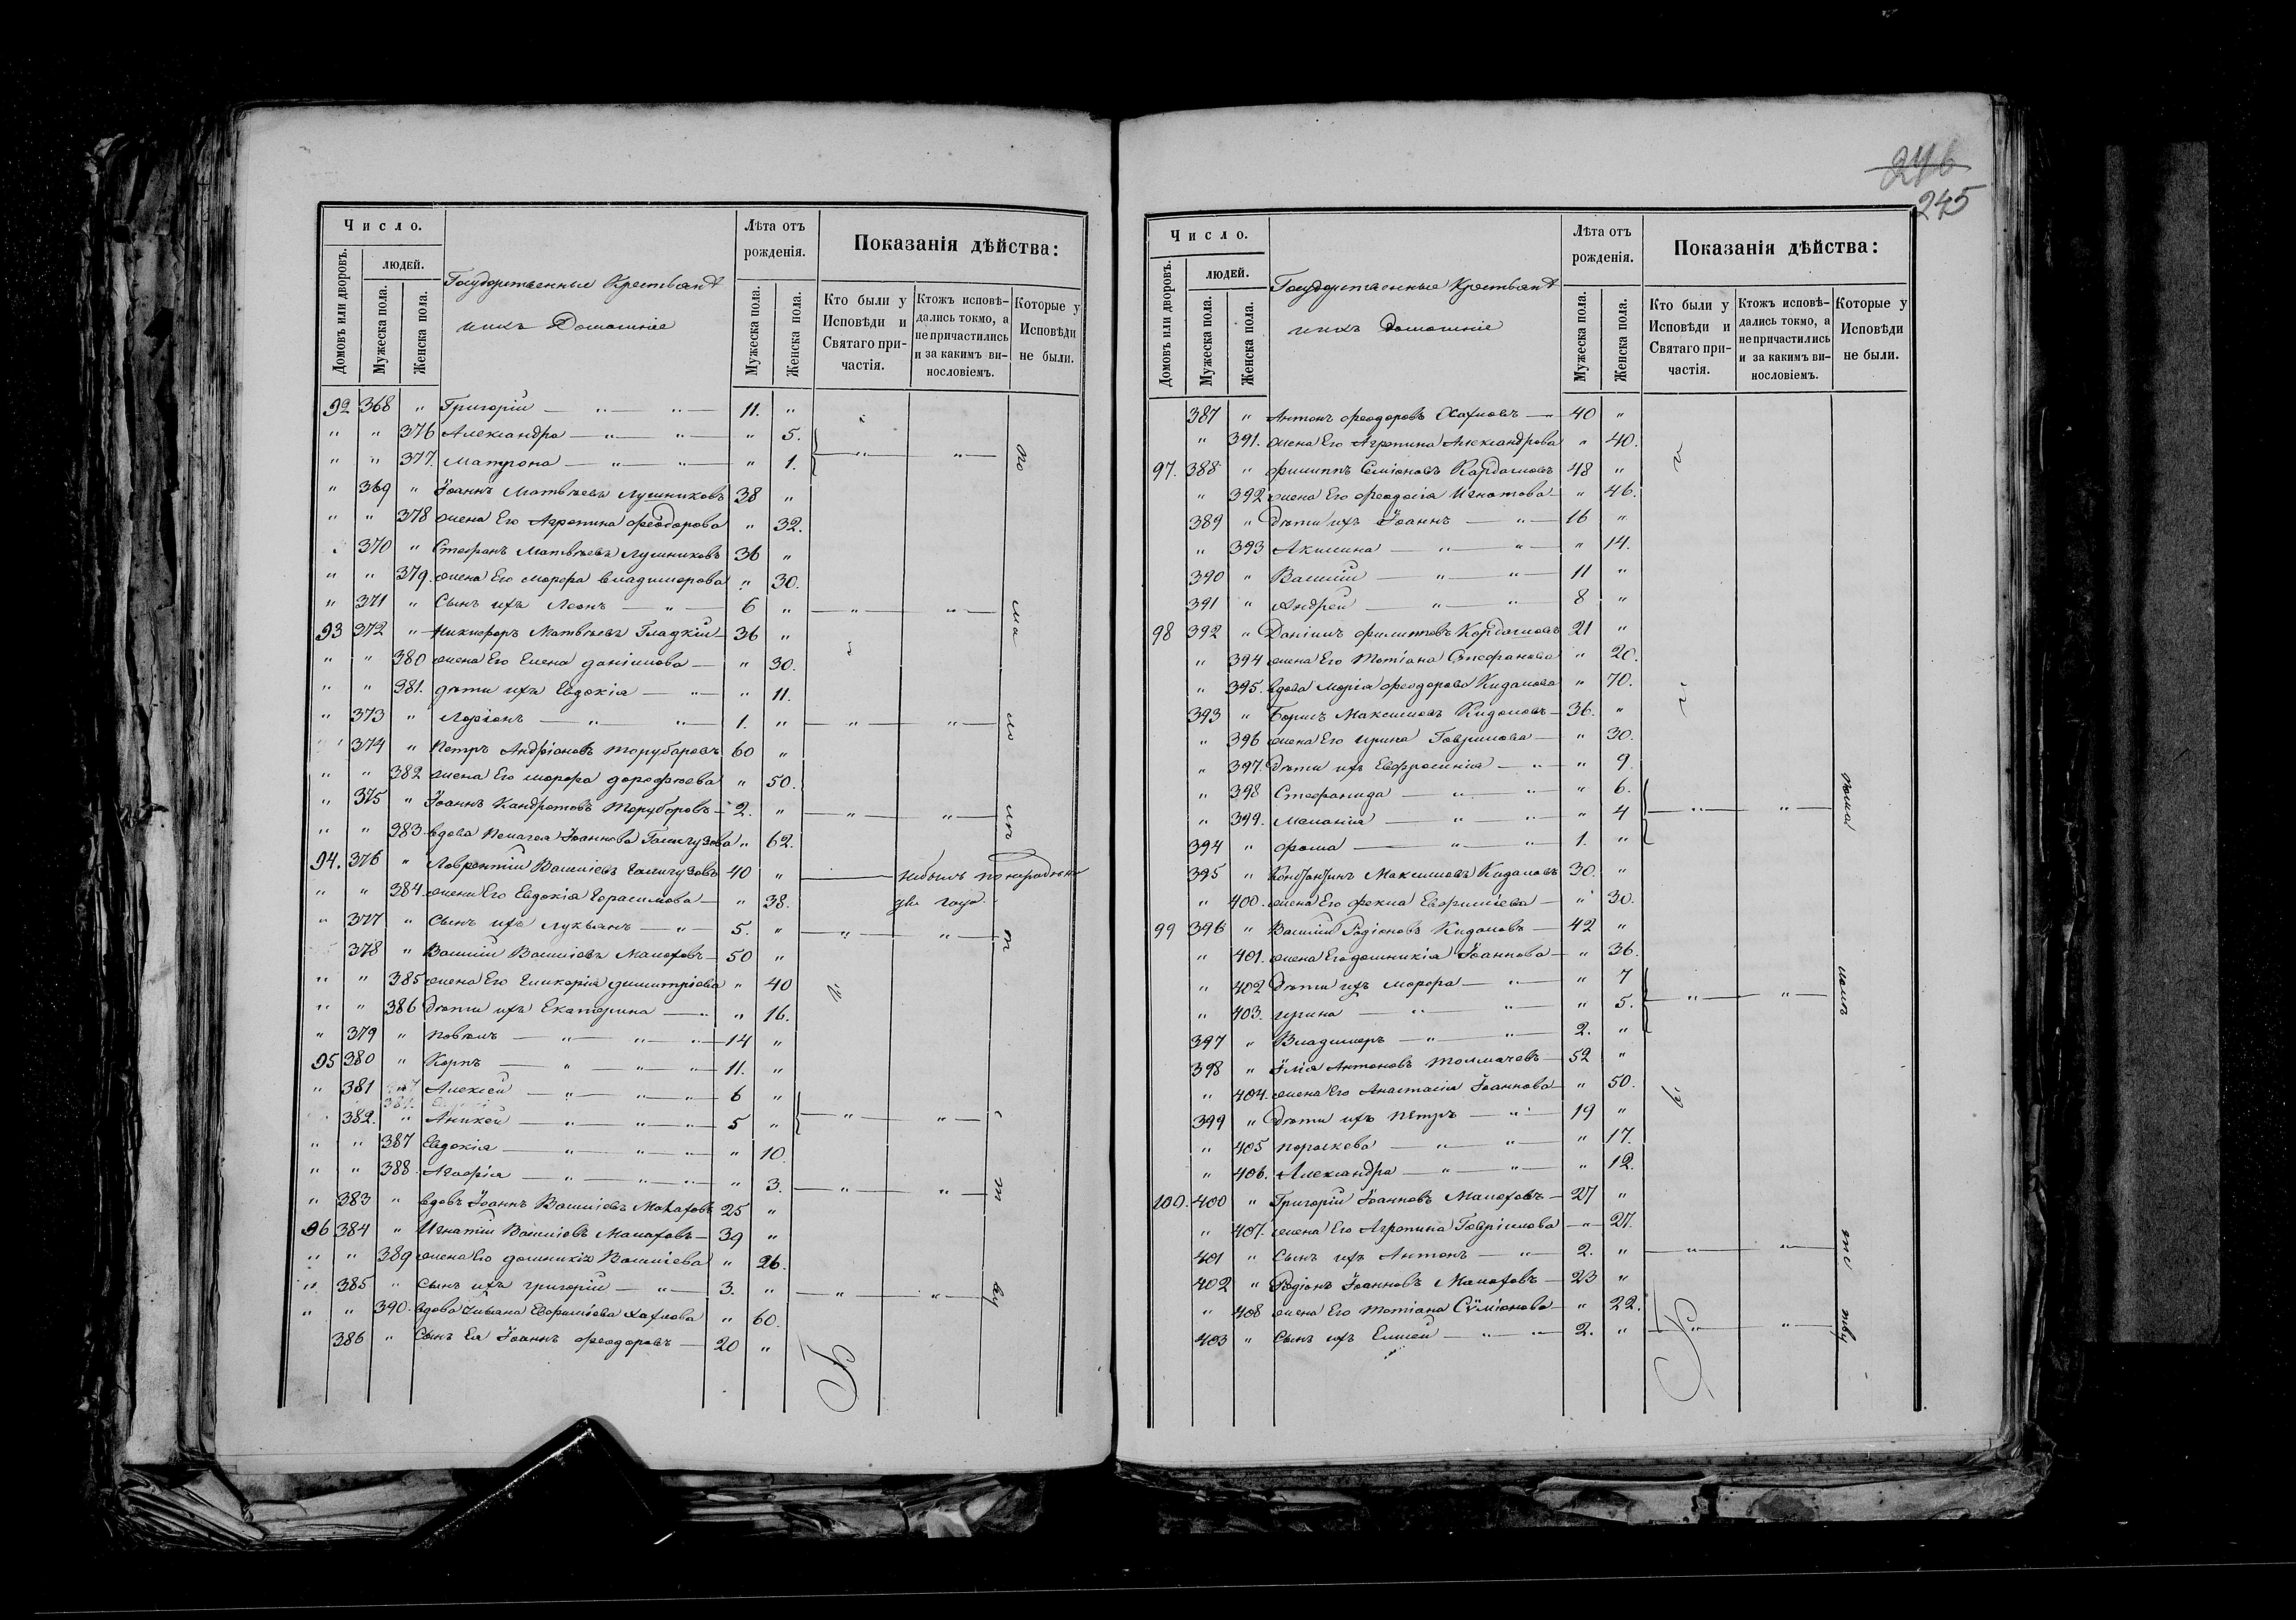 Число.
Домовъ или дворовъ.
людей.
Мужеска пола.
Женска пола.
Государственные Крестьяне
ихъ Домашніе
Лѣта отъ рожденія.
Мужеска пола.
Женска пола.
Показанія дѣйства:
Кто были у Исповѣди и Святаго причастія.
Ктожъ исповѣдались токмо, а не причастились и за какимъ винословіемъ.
Которые у Исповѣди не были.
92 368 " Григорій — " — " — 11. "
" " 376 Александра — " — " — " 5.
" " 377. Матрона — " — " — " 1.
" 369 " Іоаннъ Матвѣевъ Лушниковъ 38 "
" " 378 жена Его Агрепина Феодорова " 32.
" 370 " Стефанъ Матвѣевъ Лушниковъ 36 "
" " 379. жена Его Марфа Владимерова " 30.
" 371 " Сынъ ихъ Леонъ — " — 6 "
93 372 " Никифоръ Матвѣевъ Гладкій — 36 "
" " 380 жена Его Елена Даніилова — " 30.
" " 381. дѣти ихъ Евдокія — " — " 11.
" 373 " Ларіонъ — " — " — 1. "
" 374 " Петръ Андріановъ Торубаровъ 60 "
" " 382 жена Его Марфа Дорофѣева " 50.
" 375 " Іоаннъ Кандратовъ Торубаровъ — 2. "
" " 383. вдова Пелагея Іоаннова " 62.
94. 376 " Лаврентій Василіевъ 40 "
" " 384. жена Его Евдокія Герасимова — " 38.
два года
" 377 " Сынъ ихъ Лукьянъ — " — 5. "
378 " Василій Василіевъ Малаховъ — 50 "
" " 385 жена Его Гликерія Димитріева " 40
" " 386 Дѣти ихъ Екатерина — " 16.
" 379 " Павелъ — " — " — 14 "
95 380 " Карпъ — " — " — 11. "
" 381 Алексей — " — " — 6 "
382. " Аникей — " — " — 5 "
" " 387 Евдокія — " — " — " 10.
" " 388. Агафія — " — " — " 3.
" 383 " вдовъ Іоаннъ Василіевъ Малаховъ 25 "
96 384 " Игнатій Василіевъ Малаховъ — 39 "
" " 389 жена Его Домникія Василіева " 26.
" 385 " Сынъ ихъ Григорій — " — 3. "
" " 390. вдова Евфиміева " 60.
386 " Сынъ Ея Іоаннъ Феодоровъ — 20 "
246
245
Число.
Домовъ или дворовъ.
людей.
Мужеска пола.
Женска пола.
Государственные Крестьяне
ихъ Домашніе
Лѣта отъ рожденія.
Мужеска пола.
Женска пола.
Показанія дѣйства:
Кто были у Исповѣди и Святаго причастія.
Ктожъ исповѣдались токмо, а не причастились и за какимъ винословіемъ.
Которые у Исповѣди не были.
387 " Антонъ Феодоровъ — 40 "
" 391. жена Его Агрепина Александрова " 40.
97. 388. " Филиппъ Семіоновъ Кардашовъ 48 "
" 392 жена Его Феодосія Игнатова — " 46.
389 " Дѣти ихъ Іоаннъ — " — 16 "
" 393 Акилина — " — " — " 14.
390 " Василій — " — " — 11 "
391 " Андрей — " — " — 8 "
98 392 " Даніилъ Филиповъ Кордашовъ 21 "
" 394 жена Его Татіана Стефанова " 20.
" 395. вдова Марія Феодорова Кидалова " 70.
393 " Борисъ Максимовъ Кидаловъ — 36. "
" 396 жена Его Ирина Гаврилова — " 30.
" 397. Дѣти ихъ Евфросинія — " — " 9
" 398 Стефанида — " — " — " 6.
" 399. Меланія — " — " — " 4
394 " Фома — " — " — 1. "
395 " Константинъ Максимовъ Кидаловъ 30. "
" 400. жена Его Фекла Евфиміева — " 30.
99 396 " Василій Родіоновъ Кидаловъ — 42 "
" 401. жена Его Домникія Іоаннова — " 36.
" 402 Дѣти ихъ Марфа — " — " 7
" 403. Ирина — " — " — " 5.
397 " Владимеръ — " — " — 2. "
398 " Илія Антоновъ Толмачевъ — 52 "
" 404. жена Его Анастасія Іоаннова — " 50.
399 " Дѣти ихъ Петръ — " — 19 "
" 405 Параскева — " — " — " 17.
" 406. Александра — " — " — " 12.
100. 400 " Григорій Іоанновъ Малаховъ — 27 "
" 407. жена Его Агрепина Гавріилова — " 27.
401 " Сынъ ихъ Антонъ — " — 2. "
402 " Родіонъ Іоанновъ Малаховъ — 23 "
" 408 жена Его Татіана Симіонова — " 22.
403 " Сынъ ихъ Елисей — " — 2. "